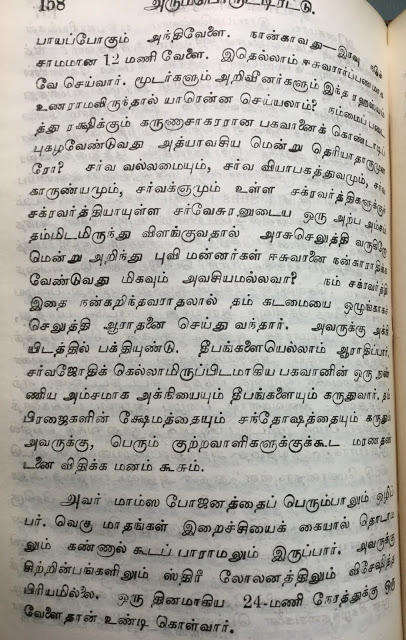 158 அரும்பொருட்டிரட்டு.
பாயப்போகும் அந்திவேளை. நான்காவது—இரவு
சாமமான 12 மணி வேளை. இதெல்லாம் ஈசுவரார்ப்பணமாக
வே செய்வார். முடர்களும் அறிவீனர்களும் இந்த ரஹஸ்யம்
உணராமலிருந்தால் யாரென்ன செய்யலாம்? நம்மைப் படை
த்து ரக்ஷிக்கும் கருணாசாகரரான பகவானைக் கொண்டாடிப்
புகழவேண்டுவது அத்யாவசிய மென்று தெரியாதாருமுள
ரோ? சர்வ வல்லமையும், சர்வ வியாபகத்துவமும், சர்வ
காருண்யமும், சர்வக்ஞமும் உள்ள சக்ரவர்த்திகளுக்குச்
சக்ரவர்த்தியாயுள்ள சர்வேசுரனுடைய ஒரு அற்ப அம்சம்
தம்மிடமிருந்து விளங்குவதால் அரசுசெலுத்தி வருகிறோ
மென்று அறிந்து புவி மன்னர்கள் ஈசுவரனை நன்காராதிக்க
வேண்டுவது மிகவும் அவசியமல்லவா? நம் சக்ரவர்த்தி
இதை நன்கறிந்தவராதலால் தம் கடமையை ஒழுங்காகச்
செலுத்தி ஆராதனை செய்து வந்தார். அவருக்கு அக்நி
யிடத்தில் பக்தியுண்டு. தீபங்களையெல்லாம் ஆராதிப்பார்.
சர்வஜோதிக் கெல்லாமிருப்பிடமாகிய பகவானின் ஒரு நுண்
ணிய அம்சமாக அக்நியையும் தீபங்களையும் கருதுவார். தம்
பிரஜைகளின் க்ஷேமத்தையும் சந்தோஷத்தையும் கருதும்
அவருக்கு, பெரும் குற்றவாளிகளுக்குக்கூட மரணதண்
டனை விதிக்க மனம் கூசும்.
அவர் மாம்ஸ போஜனத்தைப் பெரும்பாலும் ஒழிப்
பர். வெகு மாதங்கள் இறைச்சியைக் கையால் தொடாம
லும் கண்ணால் கூடப் பாராமலும் இருப்பார். அவருக்கு
சிற்றின்பங்களிலும் ஸ்திரீ லோலனத்திலும் விசேஷித்த
பிரியமில்லை. ஒரு தினமாகிய 24-மணி நேரத்துக்கு ஒரு
வேளைதான் உண்டி கொள்வார்.